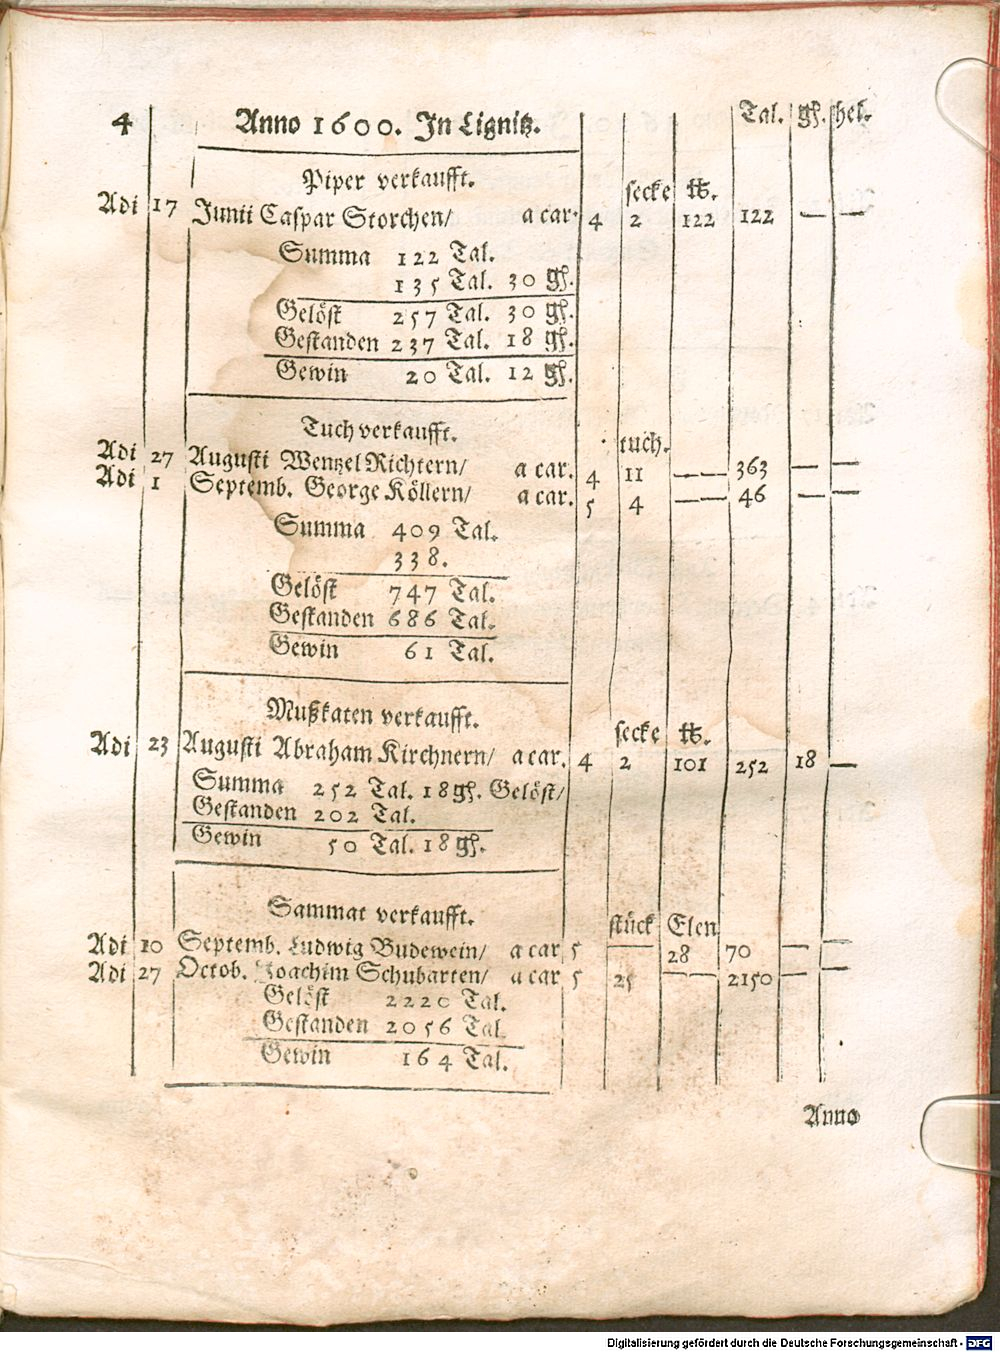 4 Anno 1600. In Lignitz. Tal. gß. hel.
Piper verkaufft. secke tt.
Adi 17 Junii Caspar Storchen/ a car. 4 2 122 122 — —
Summa 122 Tal.
135 Tal. 30 gß.
Gelöst 257 Tal. 30 gß.
Gestanden 237 Tal. 18 gß.
Gewin 20 Tal. 12 gß.
Tuch verkaufft. tuch.
Adi 27 Augusti Wentzel Richtern/ a car. 4 11 — — 363 — —
Adi 1 Septemb. George Köllern/ a car. 5 4 — — 46 — —
Summa 409 Tal.
338.
Gelöst 747 Tal.
Gestanden 686 Tal.
Gewin 61 Tal.
Mußkaten verkaufft. secke tt.
Adi 23 Augusti Abraham Kirchnern/ a car. 4 2 101 252 18 —
Summa 252 Tal. 18 gß. Gelöst/
Gestanden 202 Tal.
Gewin 50 Tal. 18 gß.
Sammat verkaufft. stück Elen
Adi 10 Septemb. Ludwig Budewein/ a car 5 — 28 70 — —
Adi 27 Octob. Joachim Schubarten/ a car 5 25 — — 2150 — —
Gelöst 2220 Tal.
Gestanden 2056 Tal
Gewin 164 Tal.
Anno
Digitalisierung gefördert durch die Deutsche Forschungsgemeinschaft - DFG